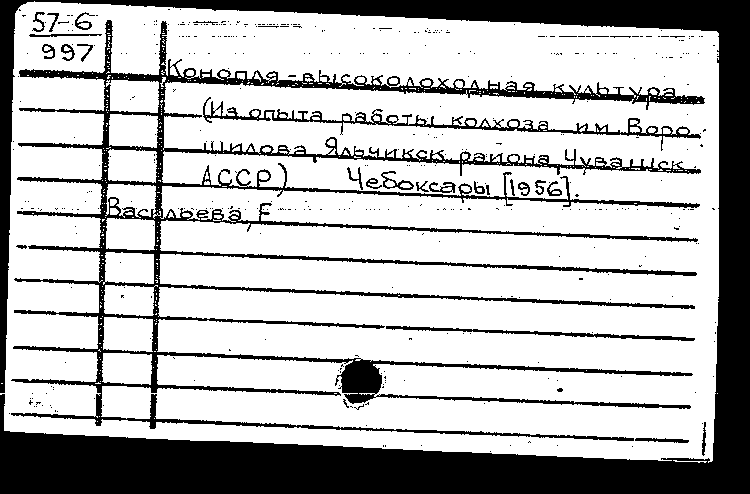 57-6
997
Конопля-высокодоходная культура.
(Из опыта работы колхоза им. Воро-
шилова, Яльчикск. района, Чувашск.
АССР) Чебоксары. [1956].
Васильева, Е